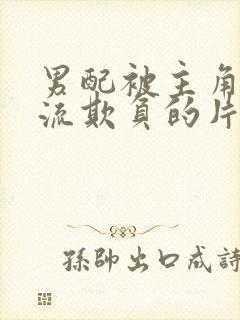 男配被主角
流欺負的片
孫帥出口成詩